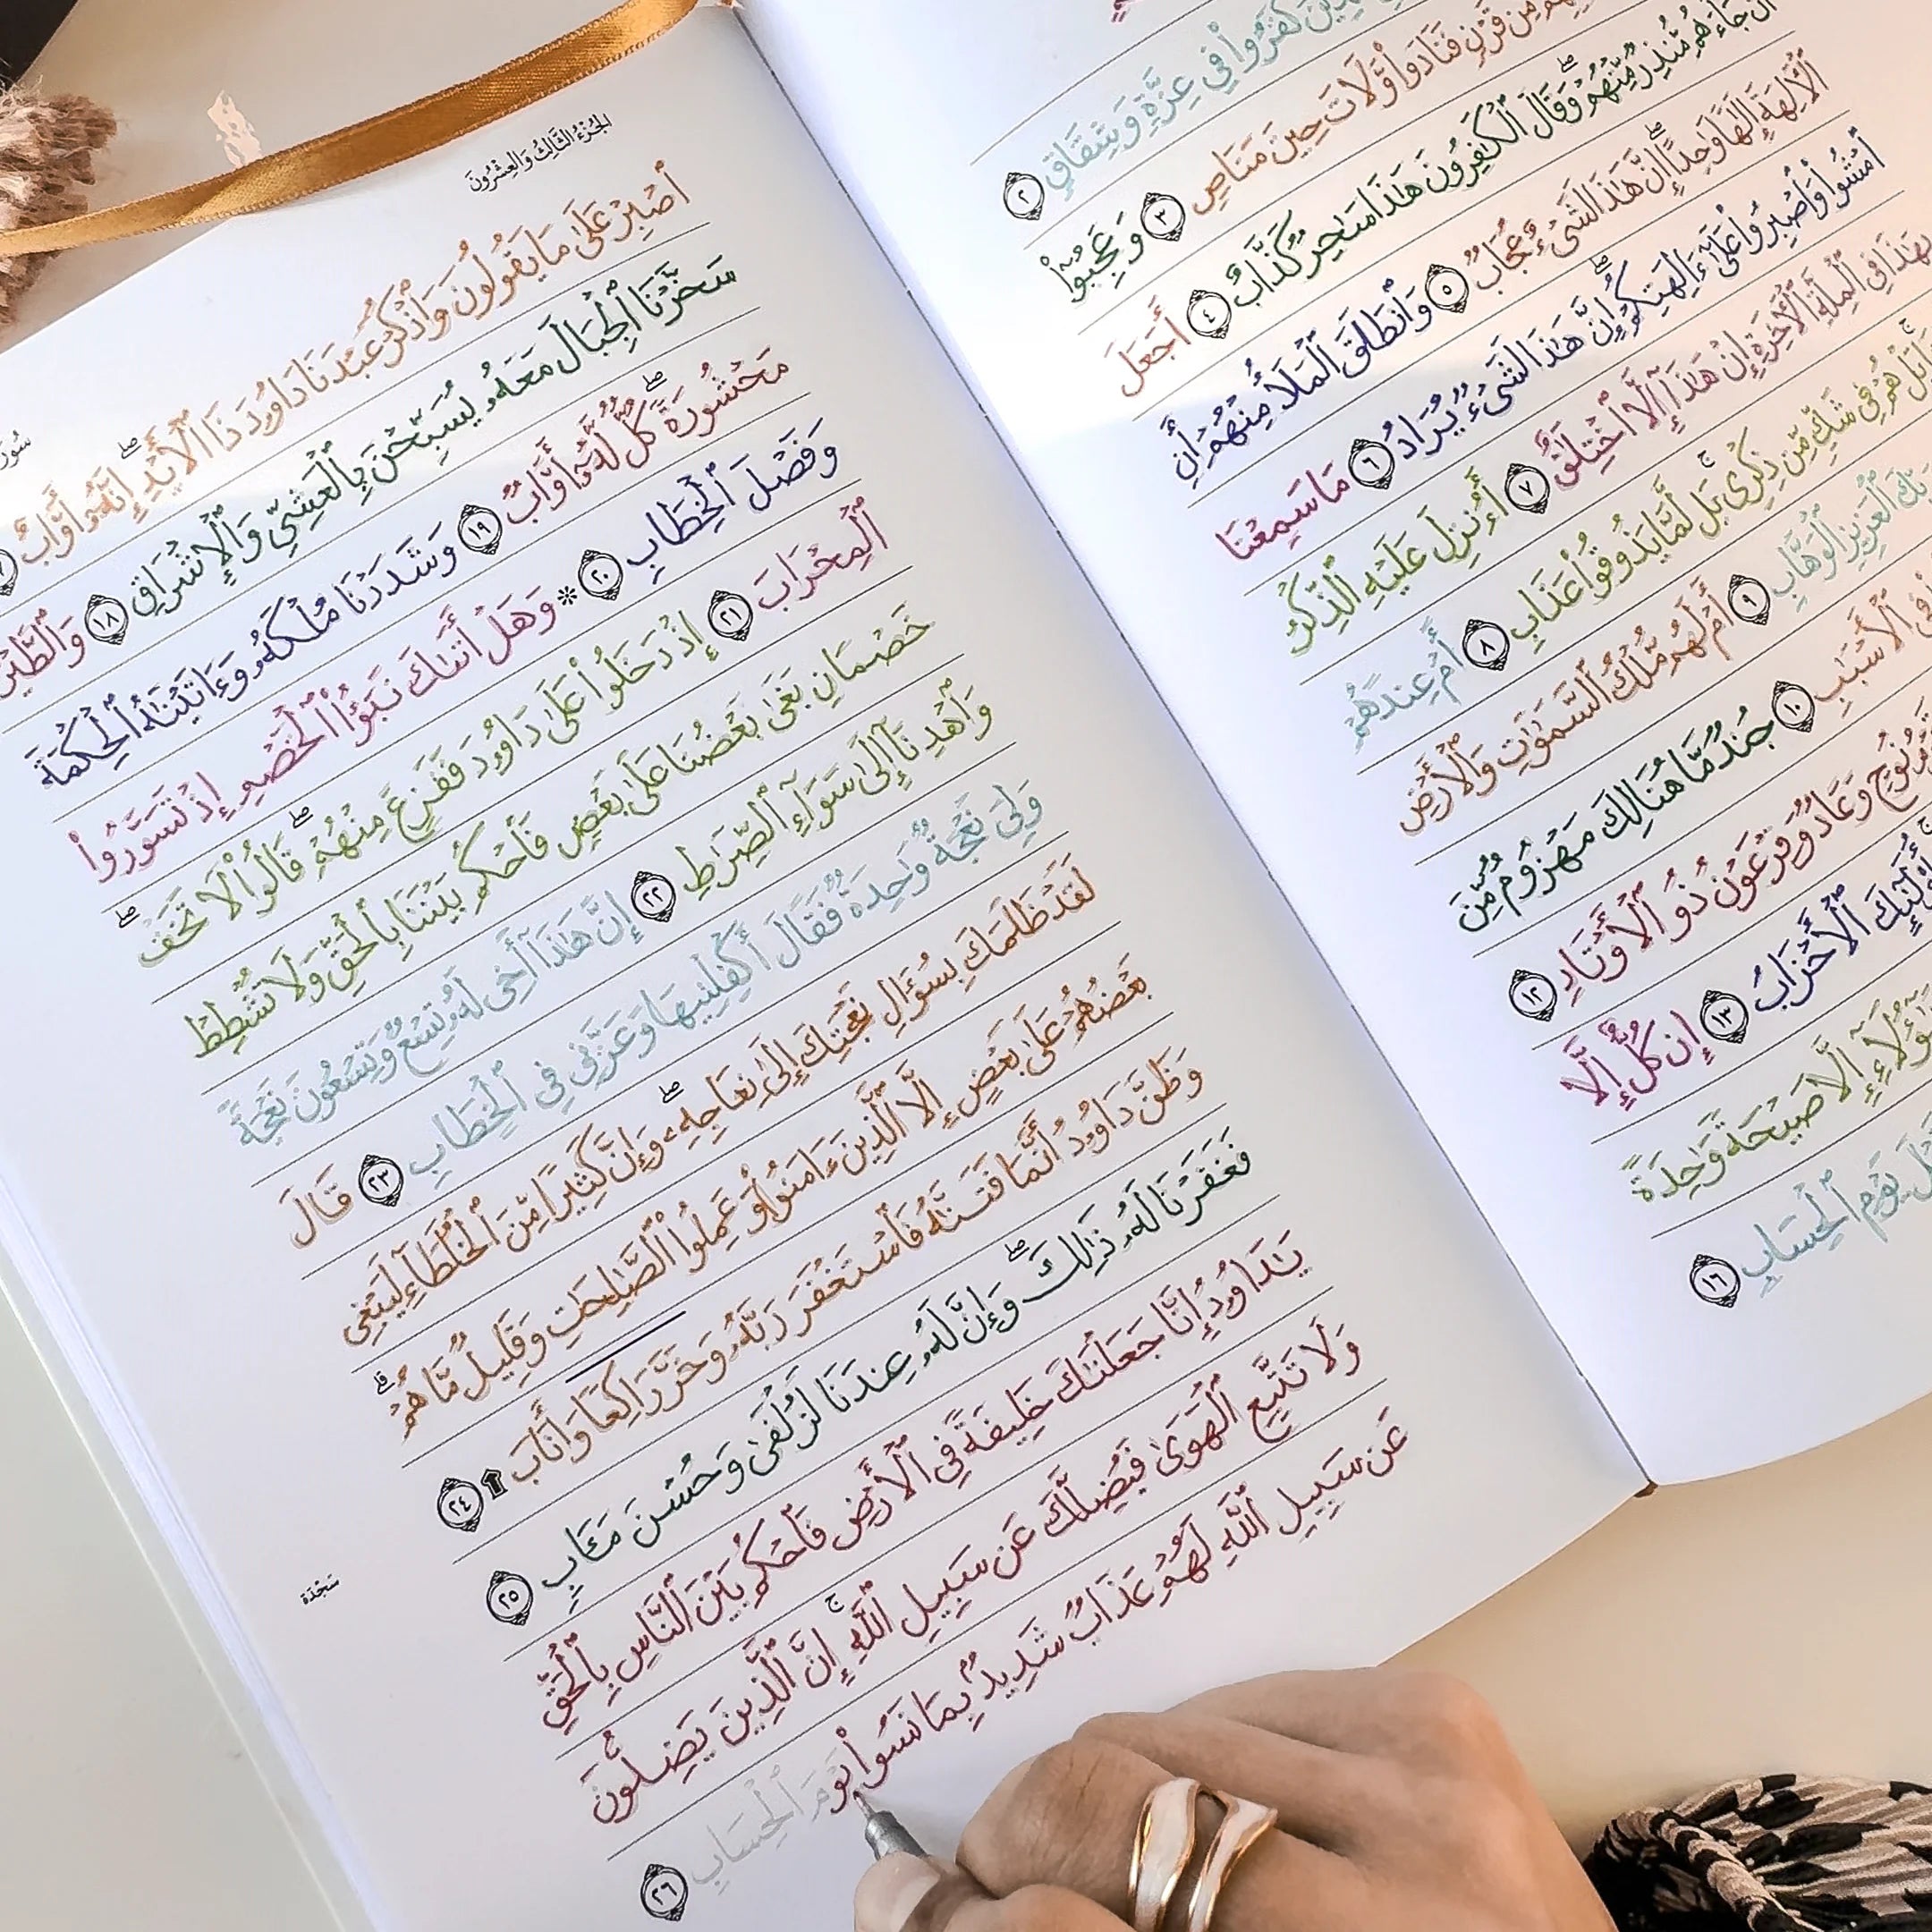 كَفَرُوا۟ فِى عِزَّةٍ وَشِقَاقٍ ٢
مِّن قَرْنٍ فَنَادَوا۟ وَّلَاتَ حِينَ مَنَاصٍ ٣ وَعَجِبُوٓا۟
أَن جَآءَهُم مُّنذِرٌ مِّنْهُمْ ۖ وَقَالَ ٱلْكَٰفِرُونَ هَٰذَا سَٰحِرٌ كَذَّابٌ ٤ أَجَعَلَ
ٱلْءَالِهَةَ إِلَٰهًا وَٰحِدًا ۖ إِنَّ هَٰذَا لَشَىْءٌ عُجَابٌ ٥ وَٱنطَلَقَ ٱلْمَلَأُ مِنْهُمْ أَنِ
ٱمْشُوا۟ وَٱصْبِرُوا۟ عَلَىٰٓ ءَالِهَتِكُمْ ۖ إِنَّ هَٰذَا لَشَىْءٌ يُرَادُ ٦ مَا سَمِعْنَا
بِهَٰذَا فِى ٱلْمِلَّةِ ٱلْءَاخِرَةِ إِنْ هَٰذَآ إِلَّا ٱخْتِلَٰقٌ ٧ أَءُنزِلَ عَلَيْهِ ٱلذِّكْرُ
بَلْ هُمْ فِى شَكٍّ مِّن ذِكْرِى ۖ بَل لَّمَّا يَذُوقُوا۟ عَذَابِ ٨ أَمْ عِندَهُمْ
ٱلْعَزِيزِ ٱلْوَهَّابِ ٩ أَمْ لَهُم مُّلْكُ ٱلسَّمَٰوَٰتِ وَٱلْأَرْضِ
فِى ٱلْأَسْبَٰبِ ١٠ جُندٌ مَّا هُنَالِكَ مَهْزُومٌ مِّنَ
نُوحٍ وَعَادٌ وَفِرْعَوْنُ ذُو ٱلْأَوْتَادِ ١٢
ٱلْأَحْزَابُ ١٣ إِن كُلٌّ إِلَّا
هَٰٓؤُلَآءِ إِلَّا صَيْحَةً وَٰحِدَةً
يَوْمِ ٱلْحِسَابِ ١٦
الجُزْءُ الثَّالِثُ وَالعِشْرُونَ
ٱصْبِرْ عَلَىٰ مَا يَقُولُونَ وَٱذْكُرْ عَبْدَنَا دَاوُۥدَ ذَا ٱلْأَيْدِ ۖ إِنَّهُۥٓ أَوَّابٌ
سَخَّرْنَا ٱلْجِبَالَ مَعَهُۥ يُسَبِّحْنَ بِٱلْعَشِىِّ وَٱلْإِشْرَاقِ ١٨ وَٱلطَّيْرَ
مَحْشُورَةً ۖ كُلٌّ لَّهُۥٓ أَوَّابٌ ١٩ وَشَدَدْنَا مُلْكَهُۥ وَءَاتَيْنَٰهُ ٱلْحِكْمَةَ
وَفَصْلَ ٱلْخِطَابِ ٢٠ * وَهَلْ أَتَىٰكَ نَبَؤُا۟ ٱلْخَصْمِ إِذْ تَسَوَّرُوا۟
ٱلْمِحْرَابَ ٢١ إِذْ دَخَلُوا۟ عَلَىٰ دَاوُۥدَ فَفَزِعَ مِنْهُمْ ۖ قَالُوا۟ لَا تَخَفْ ۖ
خَصْمَانِ بَغَىٰ بَعْضُنَا عَلَىٰ بَعْضٍ فَٱحْكُم بَيْنَنَا بِٱلْحَقِّ وَلَا تُشْطِطْ
وَٱهْدِنَآ إِلَىٰ سَوَآءِ ٱلصِّرَٰطِ ٢٢ إِنَّ هَٰذَآ أَخِى لَهُۥ تِسْعٌ وَتِسْعُونَ نَعْجَةً
وَلِىَ نَعْجَةٌ وَٰحِدَةٌ فَقَالَ أَكْفِلْنِيهَا وَعَزَّنِى فِى ٱلْخِطَابِ ٢٣ قَالَ
لَقَدْ ظَلَمَكَ بِسُؤَالِ نَعْجَتِكَ إِلَىٰ نِعَاجِهِۦ ۖ وَإِنَّ كَثِيرًا مِّنَ ٱلْخُلَطَآءِ لَيَبْغِى
بَعْضُهُمْ عَلَىٰ بَعْضٍ إِلَّا ٱلَّذِينَ ءَامَنُوا۟ وَعَمِلُوا۟ ٱلصَّٰلِحَٰتِ وَقَلِيلٌ مَّا هُمْ ۗ
وَظَنَّ دَاوُۥدُ أَنَّمَا فَتَنَّٰهُ فَٱسْتَغْفَرَ رَبَّهُۥ وَخَرَّ رَاكِعًا وَأَنَابَ ٢٤
فَغَفَرْنَا لَهُۥ ذَٰلِكَ ۖ وَإِنَّ لَهُۥ عِندَنَا لَزُلْفَىٰ وَحُسْنَ مَـَٔابٍ ٢٥
يَٰدَاوُۥدُ إِنَّا جَعَلْنَٰكَ خَلِيفَةً فِى ٱلْأَرْضِ فَٱحْكُم بَيْنَ ٱلنَّاسِ بِٱلْحَقِّ
وَلَا تَتَّبِعِ ٱلْهَوَىٰ فَيُضِلَّكَ عَن سَبِيلِ ٱللَّهِ ۚ إِنَّ ٱلَّذِينَ يَضِلُّونَ
عَن سَبِيلِ ٱللَّهِ لَهُمْ عَذَابٌ شَدِيدٌۢ بِمَا نَسُوا۟ يَوْمَ ٱلْحِسَابِ ٢٦
سَجْدَة